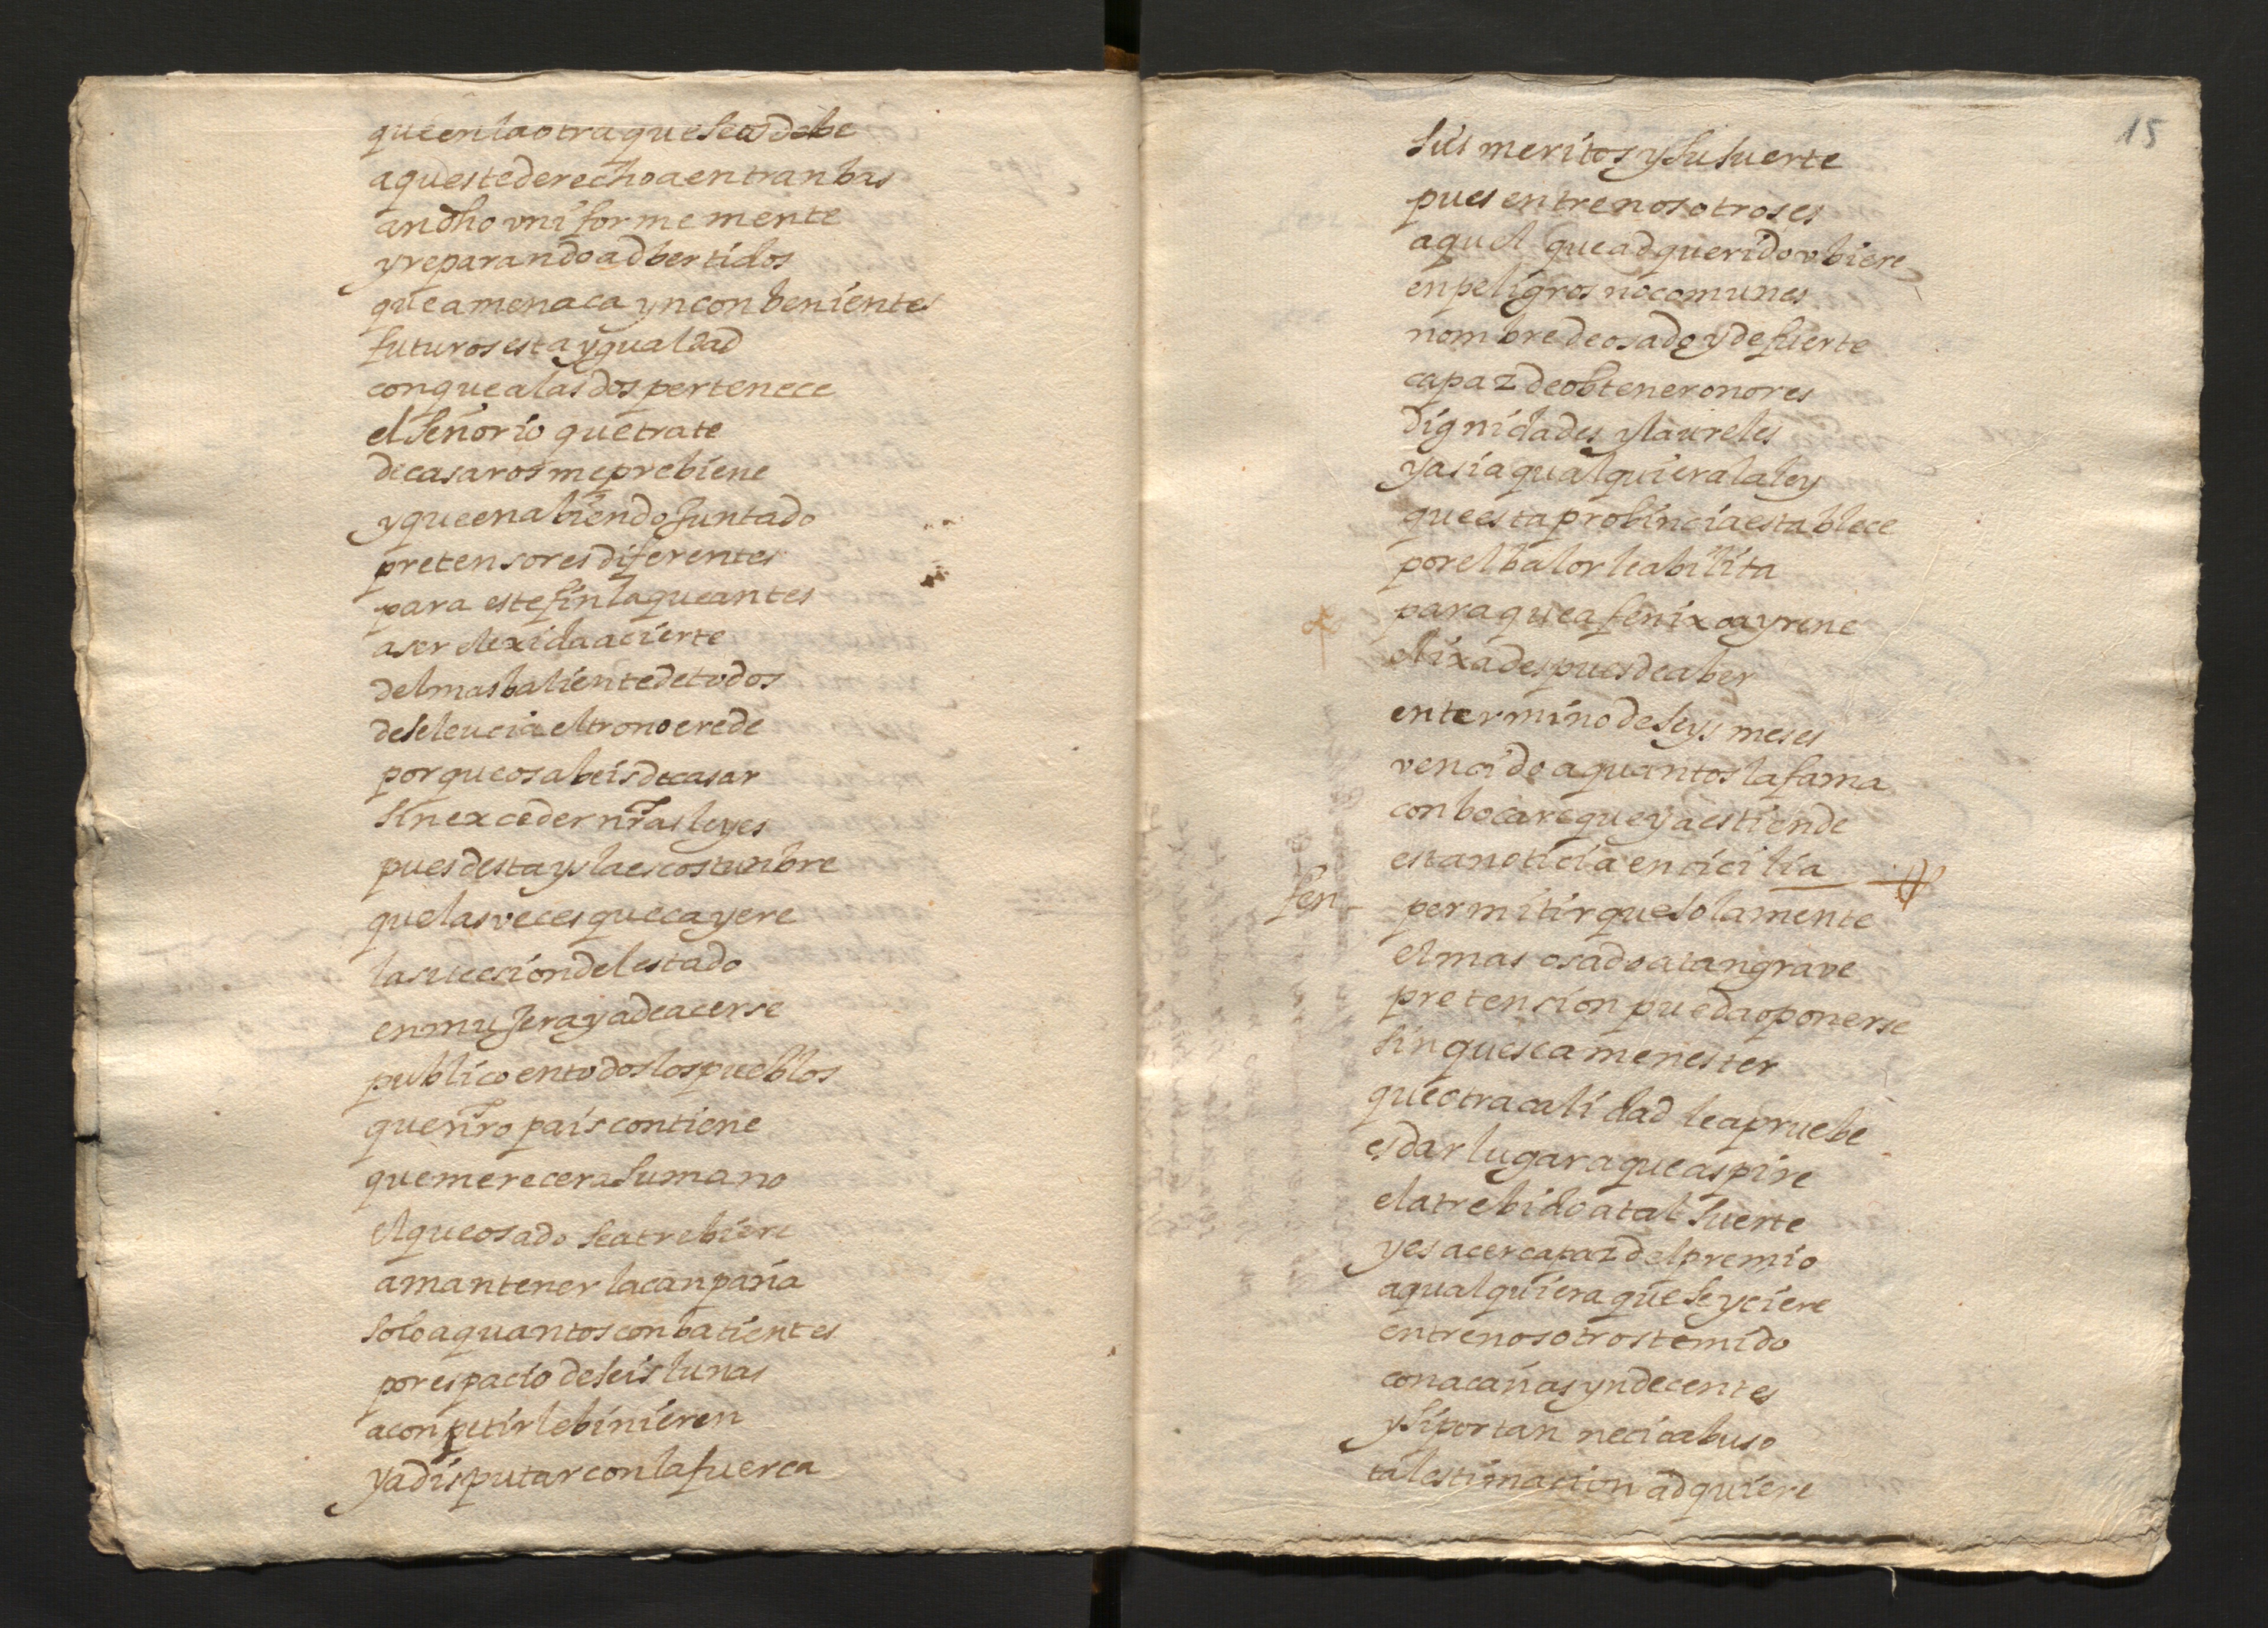 que en la otra que sea debe
aqueste derecho a entranbas
an dho vniformemente
y reparando adbertidos
que amenaca ynconbenientes
futuros esta ygualdad
con que a las dos pertenece
el señorio que trate
de casaros me prebiene
y que en abiendo juntado
pretensores diferentes
para este fin la que antes
a ser elexida acierte
del mas baliente de todos
de seleucia el trono erede
porque os abeis de casar
sin exceder nras leyes
pues desta ysla es costunbre
que las veces que cayere
la sucesion del estado
en mujer aya de acerse
publico en todos los pueblos
que nro pais contiene
que merecera su mano
el que osado se atrebiere
a mantener la canpaña
solo a quantos conbatientes
por espacio de seis lunas
a conpetirle binieren
y a disputar con la fuerca
15
sus meritos y su suerte
pues entre nosotros es
aquel que adquerido vbiere
en peligros no comunes
nombre de osado y de fuerte
capaz de obtener onores
dignidades y laureles
y asi a qualquiera la ley
que esta probincia establece
por el balor le abilita
para que a fenix o a yrene
elixa despues de aber
en termino de seys meses
vencido a quantos la fama
conbocare que ya estiende
esta noticia en cicilia
fen permitir que solamente
el mas osado a tan grave
pretension pueda oponerse
sin que sea menester
que otra calidad le apruebe
es dar lugar a que aspire
el atrebido a tal suerte
y es acer capaz del premio
a qualquiera que se yciere
entre nosotros temido
con acañas yndecentes
y si por tan necio abuso
tal estimacion adquiere